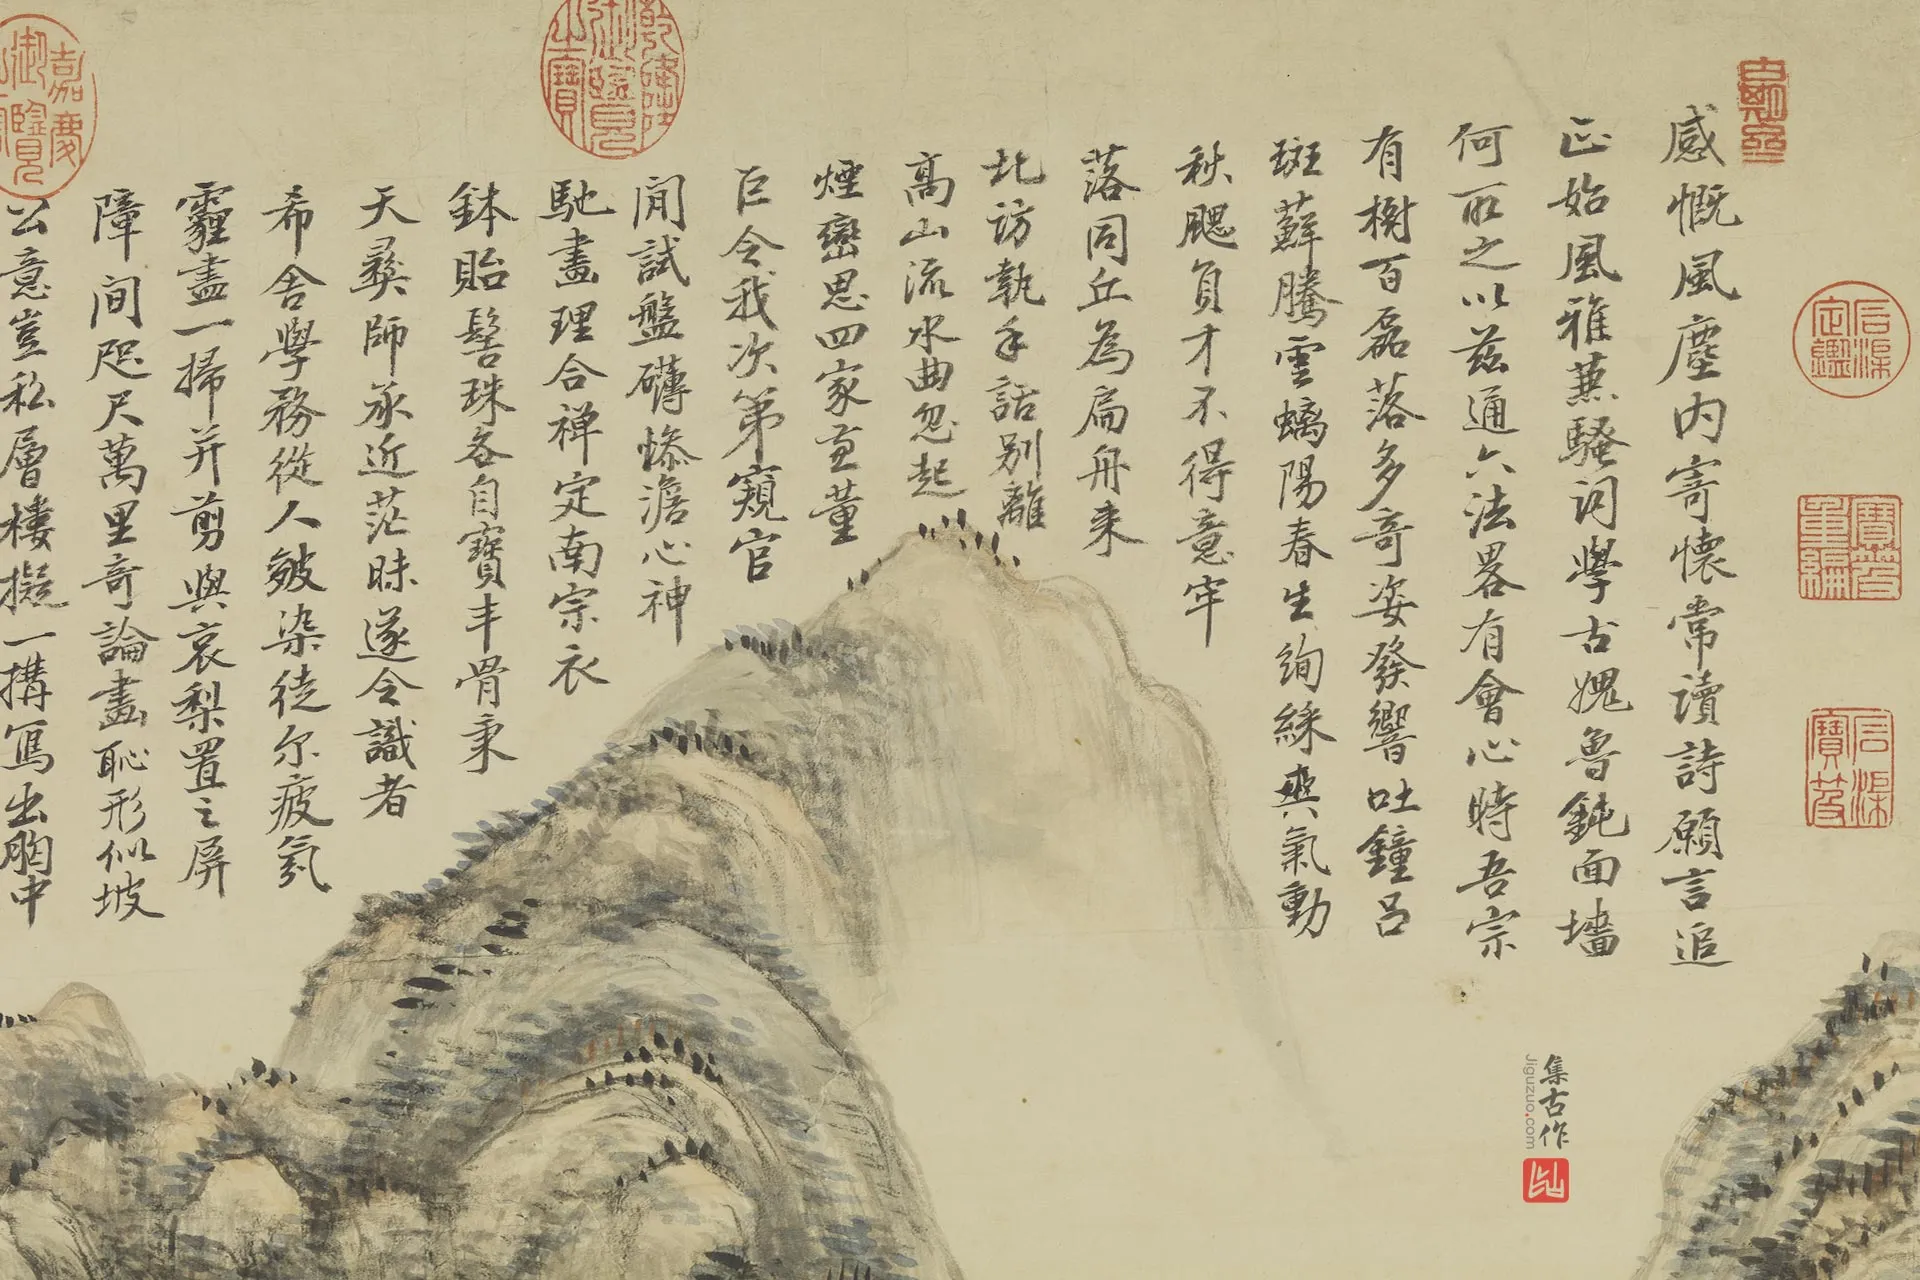 感慨風塵內寄懷常讀詩願言追
正始風雅兼騷詞學古媿魯鈍面墻
何所取之以茲通六法畧有會心時吾宗
有樹百磊落多奇姿發響吐鐘呂
斑蘚騰雲螭陽春生絢綵爽氣動
秋颸負才不得意牢
落同丘為扁舟来
北訪執手話別離
高山流水曲忽起
煙巒思四家荁董
巨令我次第窺官
閒試盤礴慘澹心神
馳畫理合禅定南宗衣
鉢貽髻珠各自寶丰骨秉
天彛師承近茫昧遂令識者
希舍學務從人皴染徒尔疲氛
霾盡一掃并剪與哀梨置之屏
障間咫尺萬里奇論畫恥形似坡
公意豈私層樓擬一搆写出胸中
嘉慶御覽
乾隆御覽之寶
石渠定鑑
寶笈重編
石渠寶笈
集古作
Jiguzuo.com